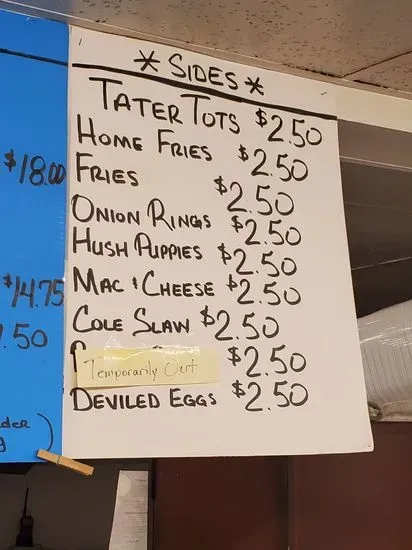 * SIDES *
TATER TOTS $2.50
HOME FRIES $2.50
FRIES $2.50
ONION RINGS $2.50
HUSH PUPPIES $2.50
MAC & CHEESE $2.50
COLE SLAW $2.50
Temporarily Out $2.50
DEVILED EGGS $2.50
$18.00
$14.75
.50